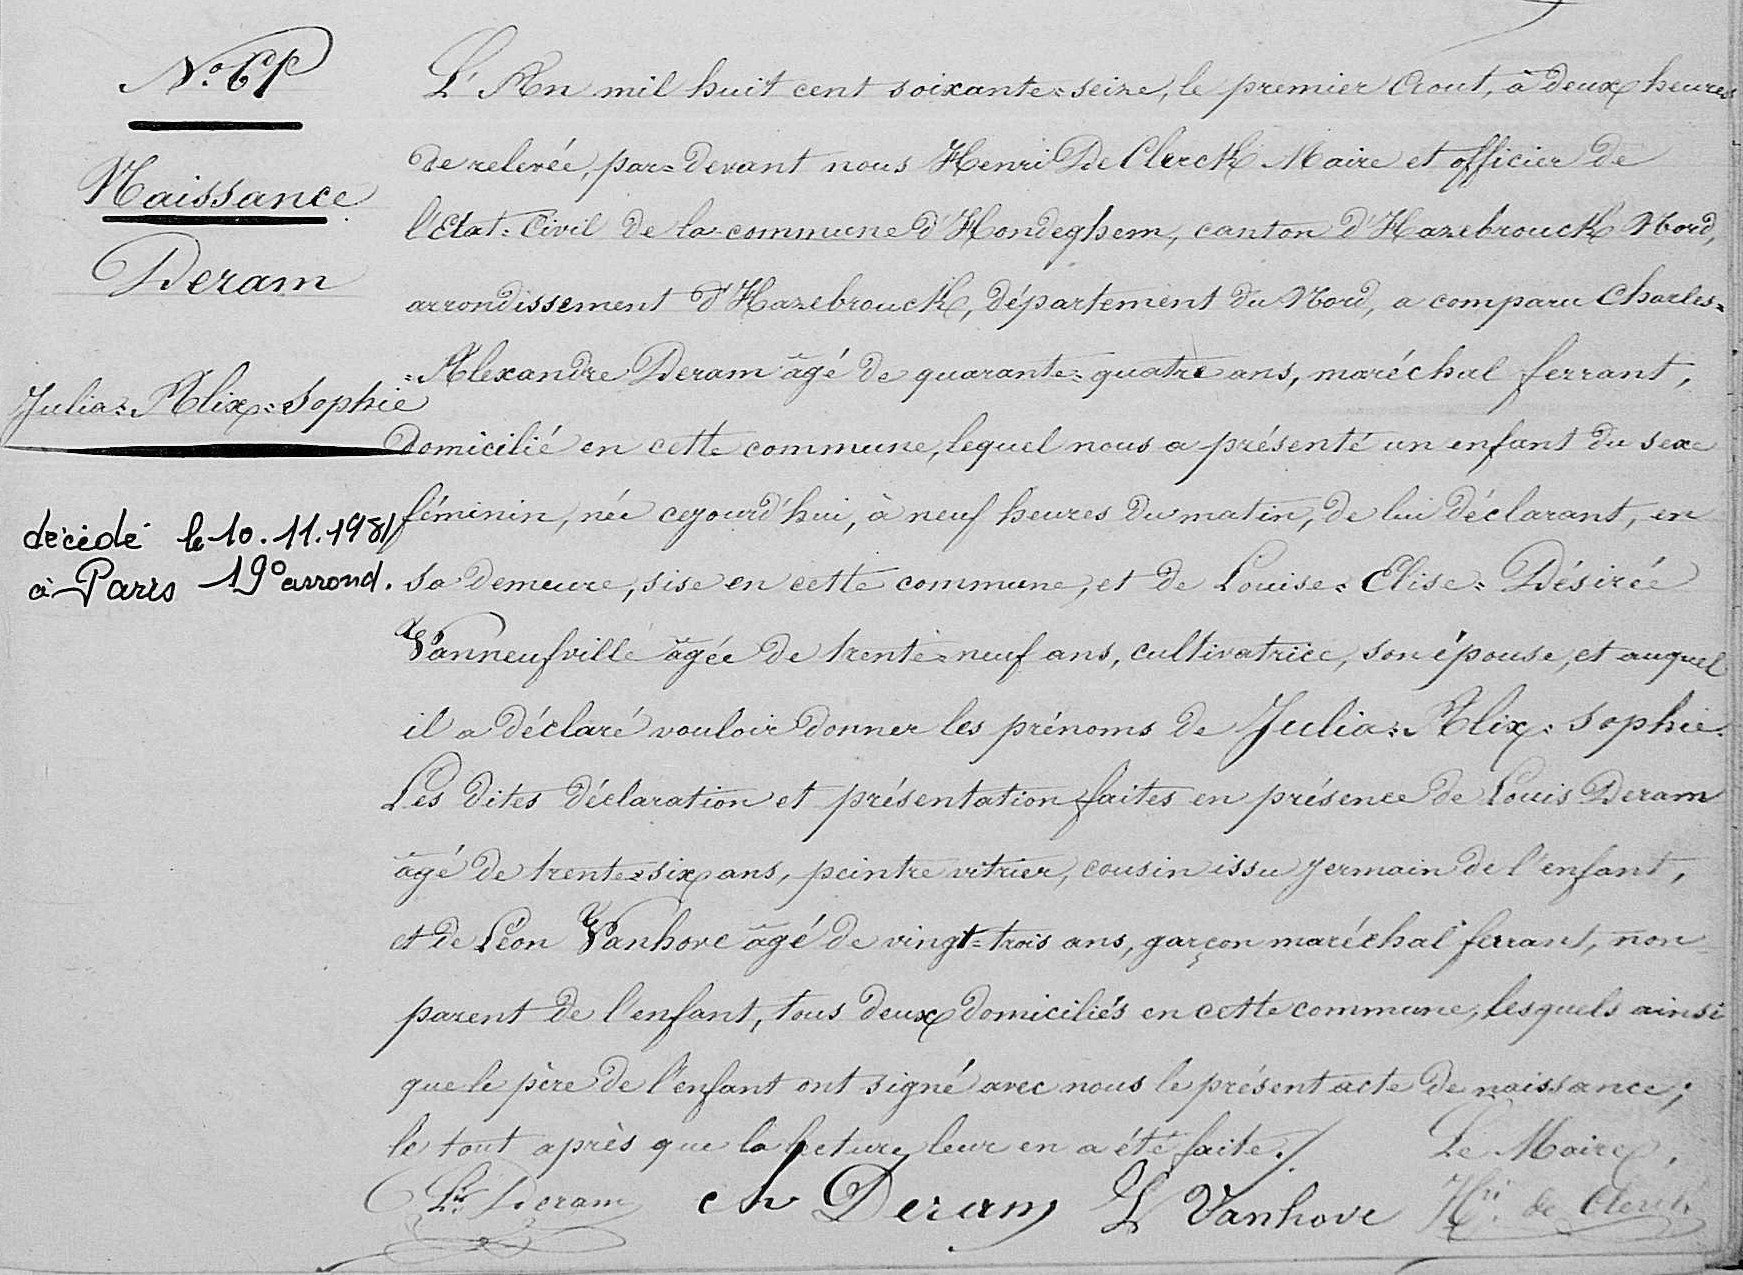 Naissance
Deram
Julia=Alix=Sophie
décédé le 10.11.1981
à Paris 19° arrond.
L'An mil huit cent soixante=seize, le premier Aout, à deux heures
de relevée, par=devant nous Henri De Clerck Maire et officier de
l'Etat=Civil de la commune d'Hondeghem, canton d'Hazebrouck Nord,
arrondissement d'Hazebrouck, département du Nord, a comparu Charles=
=Alexandre Deram âgé de quarante=quatre ans, maréchal ferrant,
domicilié en cette commune, lequel nous a présenté un enfant du sexe
féminin, née cejourd'hui, à neuf heures du matin, de lui déclarant, en
sa demeure, sise en cette commune, et de Louise=Elise=Désirée
Vanneufville âgée de trente=neuf ans, cultivatrice, son épouse, et auquel
il a déclaré vouloir donner les prénoms de Julia=Alix=Sophie.
Les dites déclaration et présentation faites en présence de Louis Deram
âgé de trente=six ans, peintre vitrier, cousin issu germain de l'enfant,
et de Léon Vanhove âgé de vingt=trois ans, garçon maréchal ferrant, non
parent de l'enfant, tous deux domiciliés en cette commune, lesquels ainsi
que le père de l'enfant ont signé avec nous le présent acte de naissance;
le tout après que la lecture leur en a été faite./
Le Maire,
Ls Deram ch Deram L Vanhove Hri de Clerck